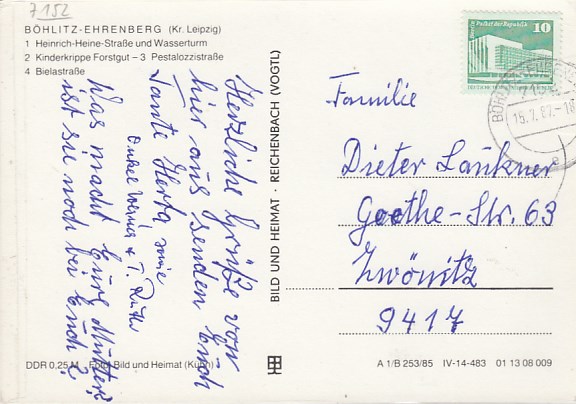 7152
BÖHLITZ-EHRENBERG (Kr. Leipzig)
1 Heinrich-Heine-Straße und Wasserturm
2 Kinderkrippe Forstgut – 3 Pestalozzistraße
4 Bielastraße
Herzliche Grüße von
hier aus senden Euch
Tante Herta sowie
Onkel Werner & T. Ruth
Was macht Eure Mutter?
ist sie noch bei Euch?
DDR 0,25 M Foto: Bild und Heimat (Kühn)
BILD UND HEIMAT · REICHENBACH (VOGTL)
Berlin, Palast der Republik
10
DDR
15.7.87.-18
Familie
Dieter Laukner
Goethe-Str. 63
Zwönitz
9417
A 1/B 253/85 IV-14-483 01 13 08 009